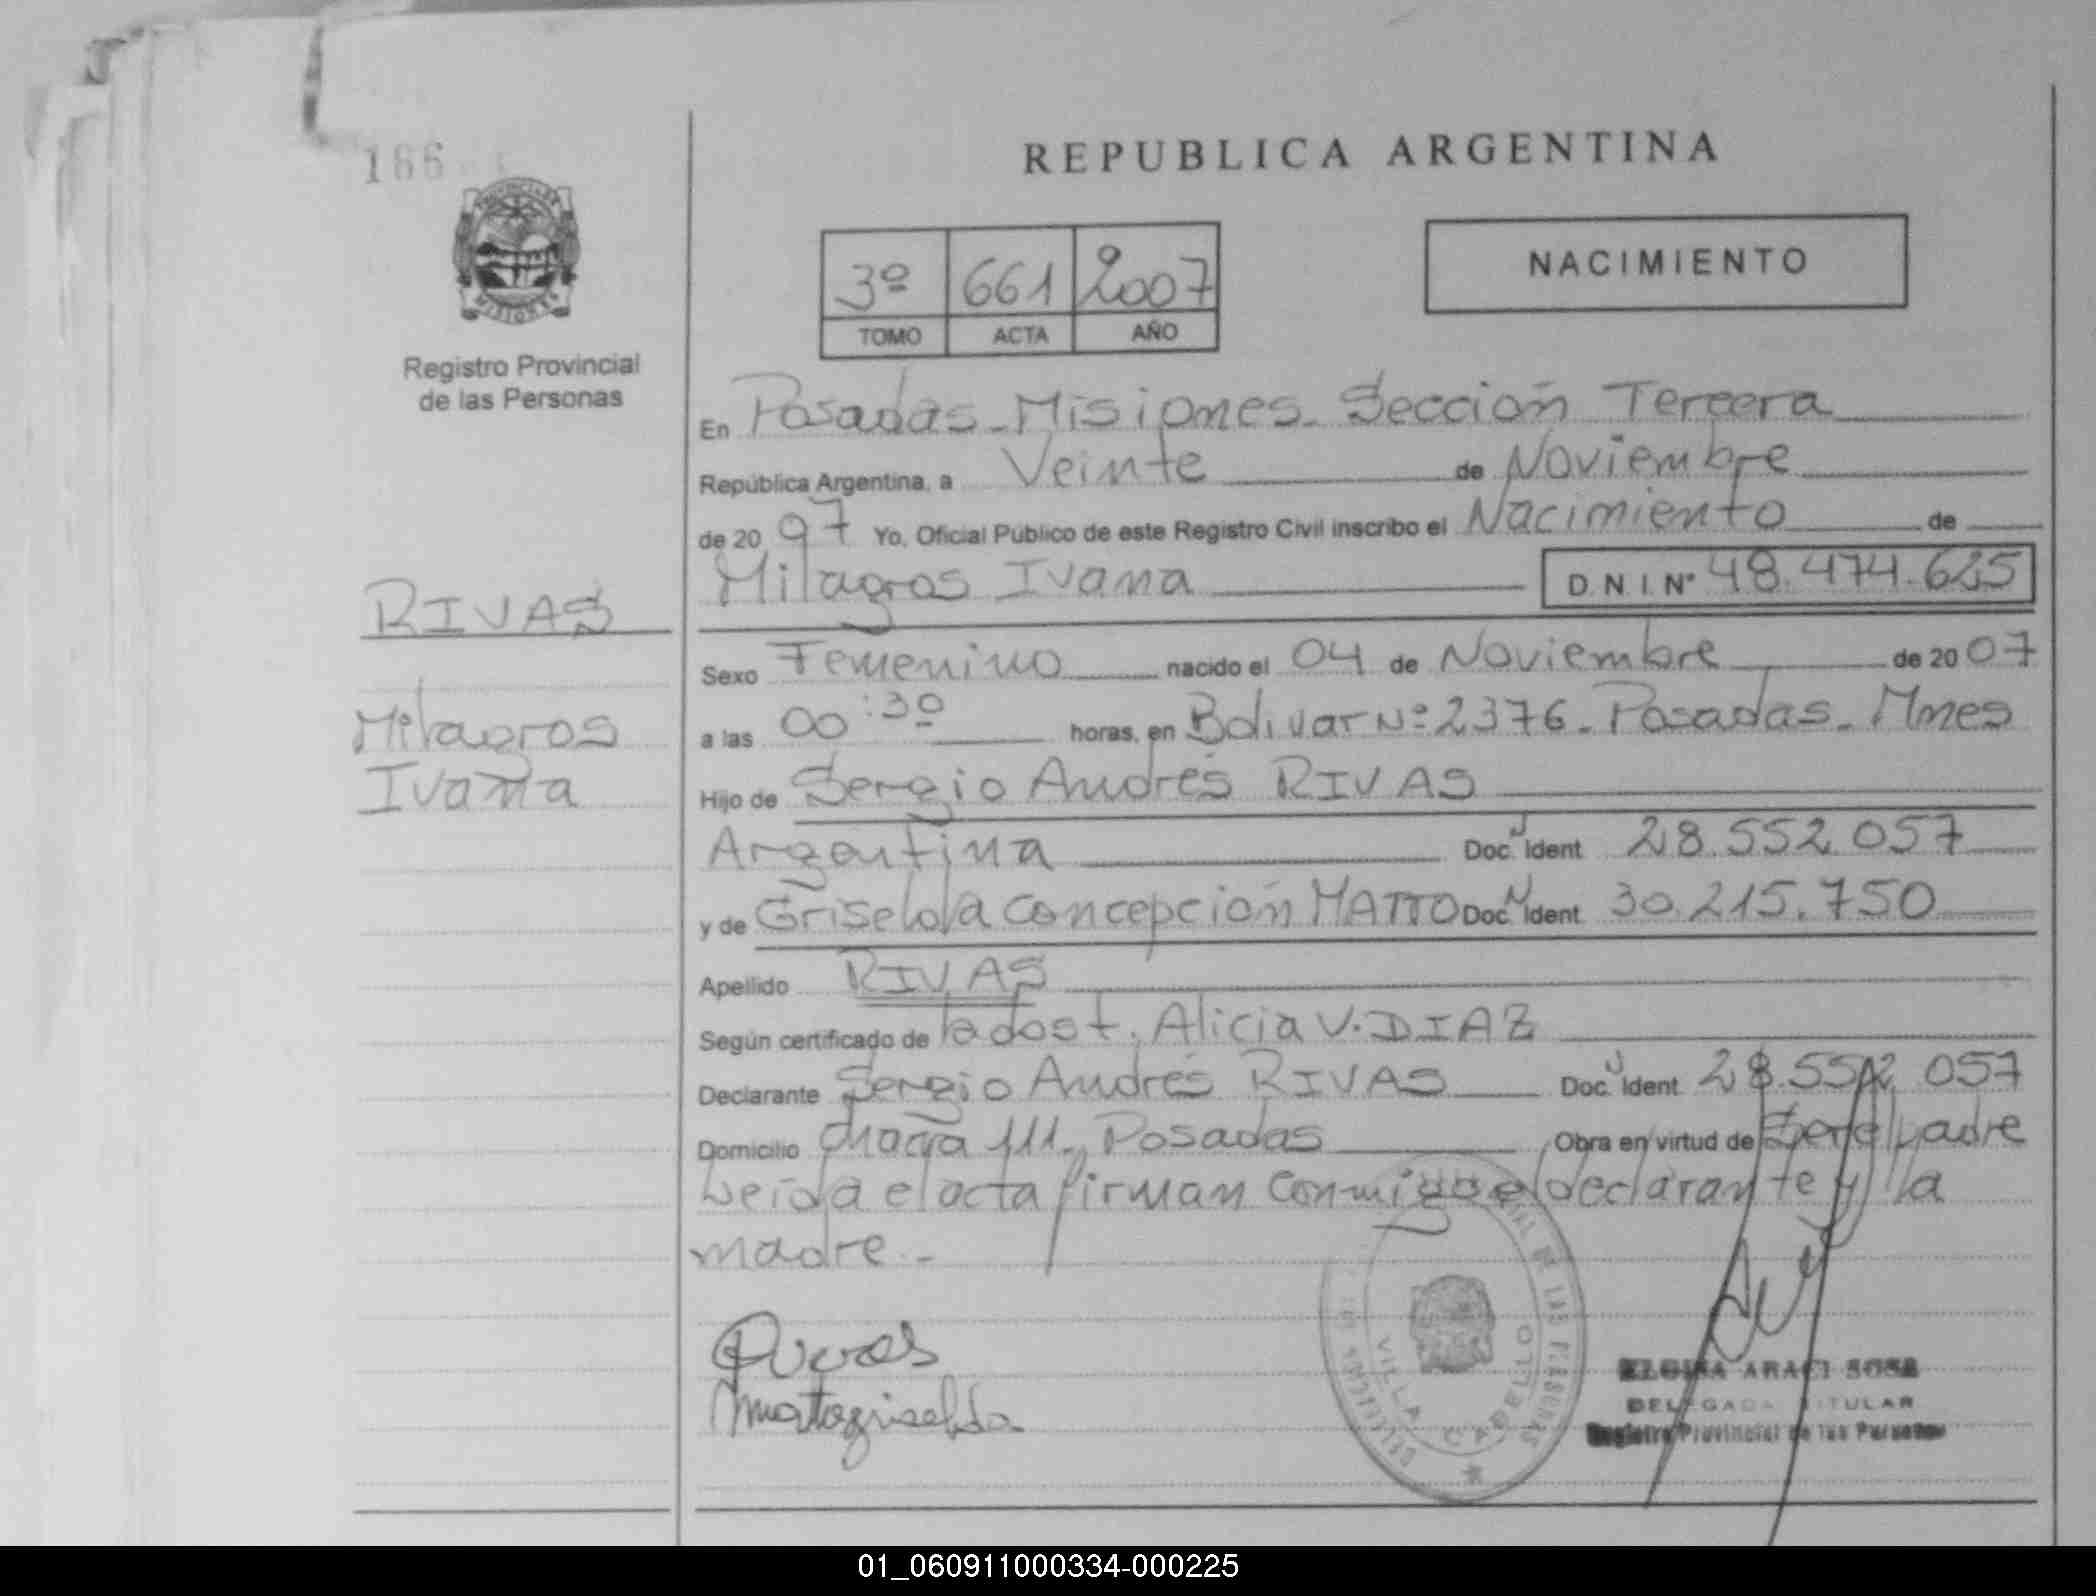 166
REPUBLICA ARGENTINA
PROVINCIA DE
MISIONES
Registro Provincial
de las Personas
3º 661 2007
TOMO ACTA AÑO
NACIMIENTO
En Posadas - Misiones - Sección Tercera
República Argentina, a Veinte de Noviembre
de 20 07 Yo, Oficial Público de este Registro Civil inscribo el Nacimiento de
Milagros Ivana D.N.I.Nº 48.474.625
RIVAS
Sexo Femenino nacido el 04 de Noviembre de 20 07
Milagros
Ivana
a las 00:30 horas, en Bolivar Nº 2376 - Posadas - Mnes
Hijo de Sergio Andrés RIVAS
Argentina Doc. Ident. 28.552.057
y de Griselda Concepción MATTO Doc. Ident. 30.215.750
Apellido RIVAS
Según certificado de Alicia V. DIAZ
Declarante Sergio Andrés RIVAS Doc. Ident. 28.552.057
Domicilio Chacra 111 - Posadas Obra en virtud de Ser el padre
Leída el acta firman conmigo el declarante y la
madre.-
Rivas
Matto griselda
VILLA CABELLO
DE LAS PERSONAS
ARACI SOSA
DELEGADA TITULAR
Registro Provincial de las Personas
01_060911000334-000225